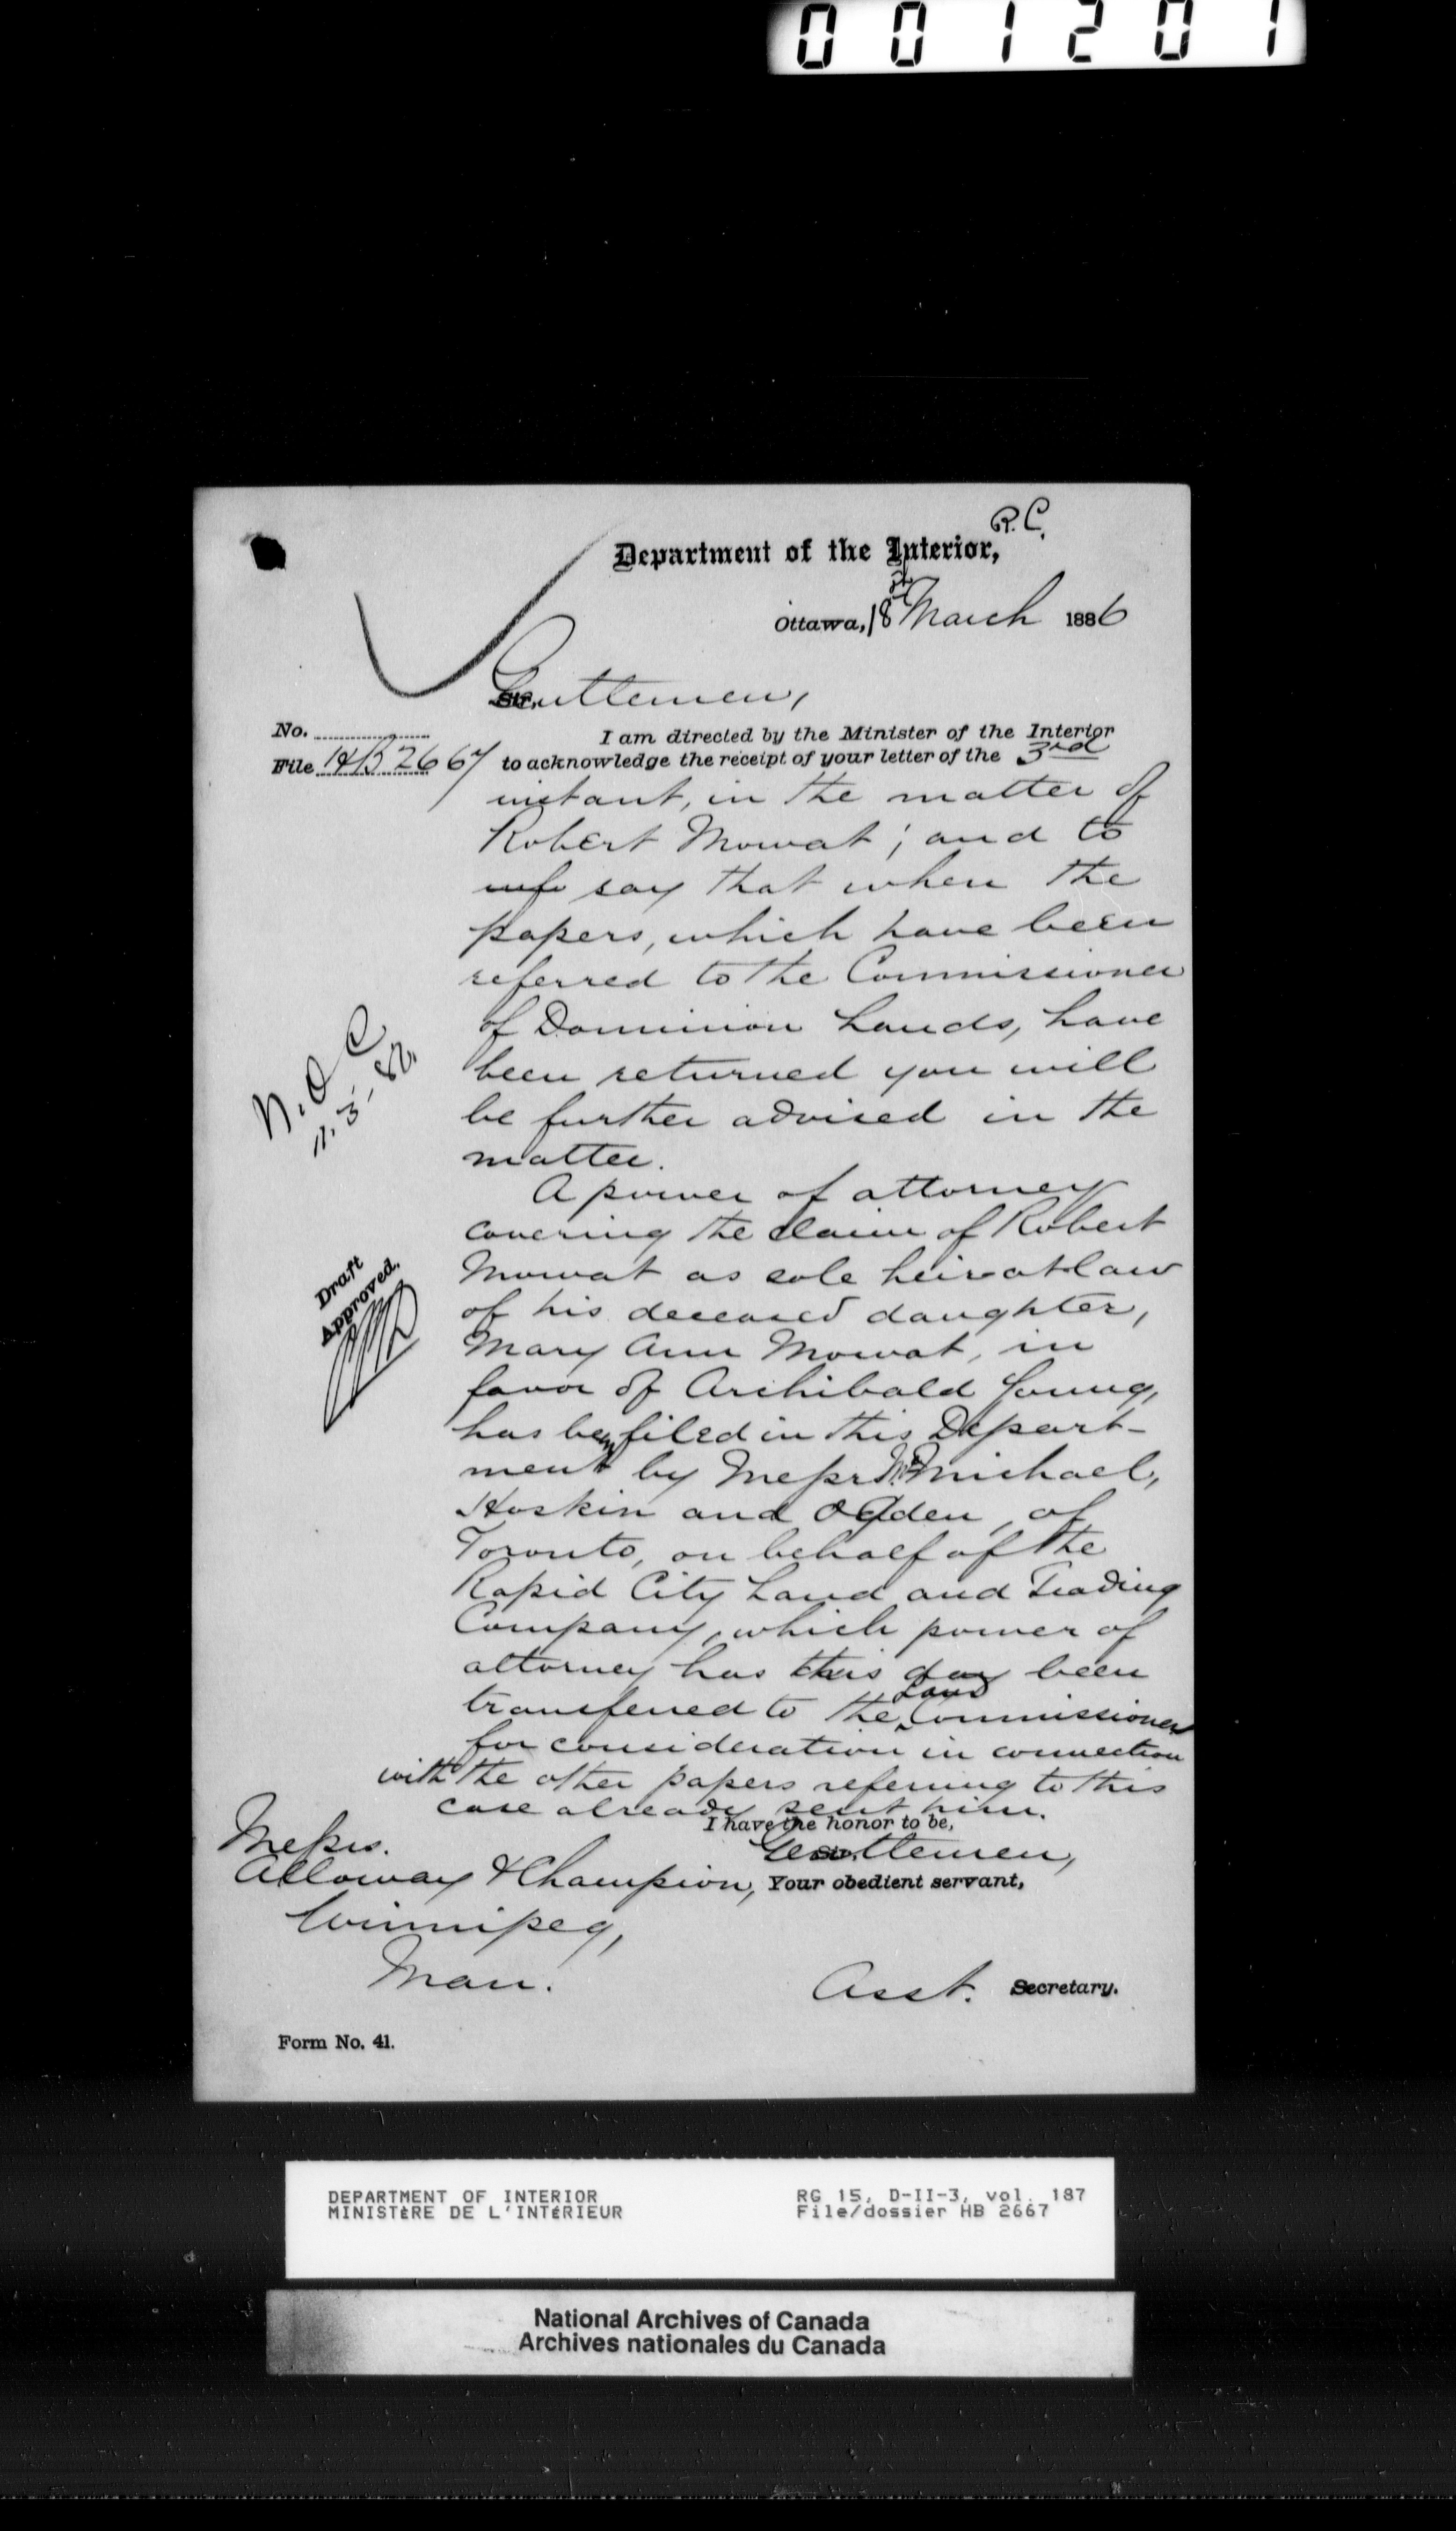 001201
R.C.
Department of the Interior,
Ottawa, 18th March 1886
Gentlemen,
No.
I am directed by the Minister of the Interior
File HB 2667 to acknowledge the receipt of your letter of the 3rd
instant, in the matter of
Robert Mowat; and to
info say that when the
papers, which have been
referred to the Commissioner
of Dominion Lands, have
been returned you will
be further advised in the
matter.
N.O.C
11.3.86.
A power of attorney
covering the claim of Robert
Mowat as sole heir-at-law
of his deceased daughter,
Mary Ann Mowat, in
favor of Archibald Young,
has been filed in this Depart-
ment by Messrs McMichael,
Hoskin and Ogden, of
Toronto, on behalf of the
Rapid City Land and Trading
Company, which power of
attorney has this day been
transferred to the Land Commissioner
for consideration in connection
with the other papers referring to this
case already sent him.
Draft
Approved.
I have the honor to be,
Gentlemen,
Your obedient servant,
Messrs.
Alloway & Champion,
Winnipeg,
Man.
Asst. Secretary.
Form No. 41.
DEPARTMENT OF INTERIOR
MINISTÈRE DE L'INTÉRIEUR
RG 15, D-II-3, vol. 187
File/dossier HB 2667
National Archives of Canada
Archives nationales du Canada